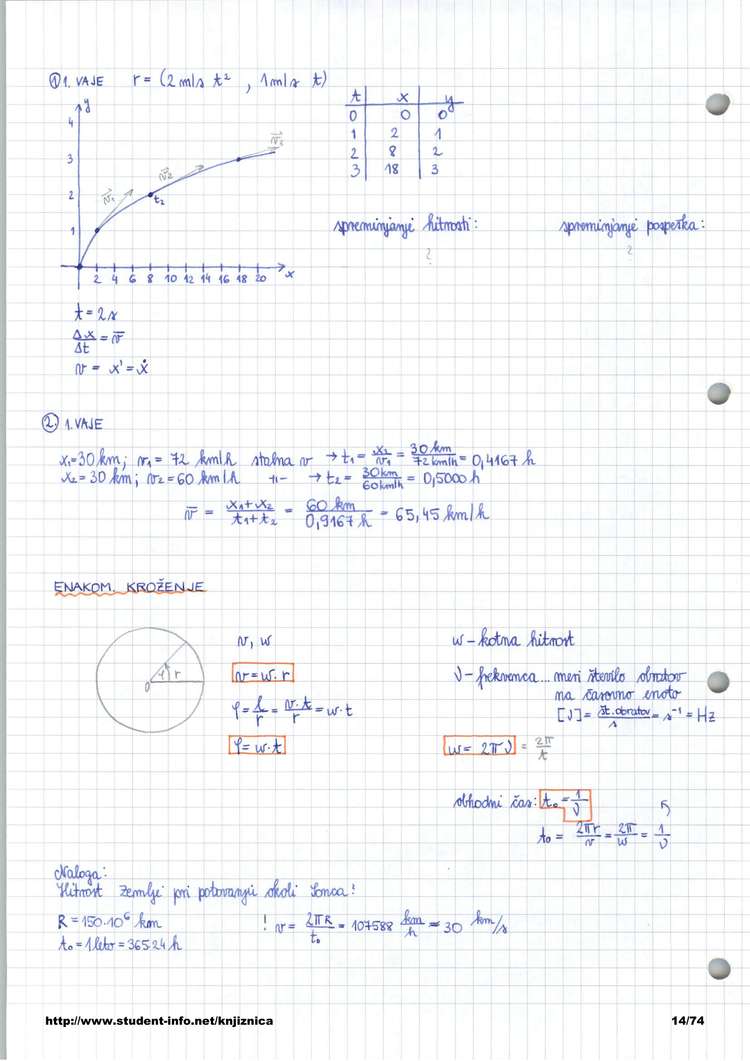 ① 1. VAJE r = (2 m/s t² , 1 m/s t)
t x y
0 0 0
1 2 1
2 8 2
3 18 3
y
4
3
2
1
v⃗₁ v⃗₂ v⃗₃
t₂
2 4 6 8 10 12 14 16 18 20 x
spreminjanje hitrosti: spreminjanje pospeška:
? ?
t = 2s
Δx/Δt = v̅
v = x' = ẋ
② 1. VAJE
x₁=30 km; v₁ = 72 km/h stalna v → t₁ = x₁/v₁ = 30 km/72 km/h = 0,4167 h
x₂ = 30 km; v₂ = 60 km/h -||- → t₂ = 30 km/60 km/h = 0,5000 h
v̅ = x₁+x₂/t₁+t₂ = 60 km/0,9167 h = 65,45 km/h
ENAKOM. KROŽENJE
φ r
0
v, w
v = w · r
φ = l/r = v·t/r = w·t
φ = w·t
w – kotna hitrost
ν – frekvenca ... meri število obratov
na časovno enoto
[ν] = št. obratov/s = s⁻¹ = Hz
w = 2πν = 2π/t
obhodni čas: t₀ = 1/ν
t₀ = 2πr/v = 2π/w = 1/ν
Naloga:
Hitrost Zemlje pri potovanju okoli Sonca!
R = 150·10⁶ km
t₀ = 1 leto = 365·24 h
! v = 2πR/t₀ = 107588 km/h ≈ 30 km/s
http://www.student-info.net/knjiznica 14/74